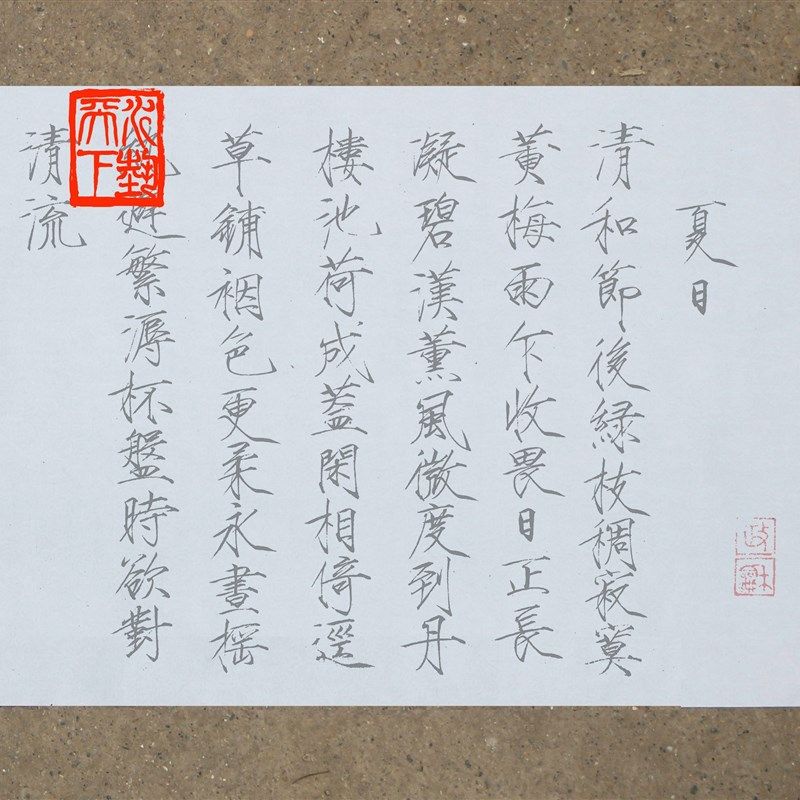 夏日
清和節後緑枝稠寂寞
黄梅雨乍收畏日正長
凝碧漢薰風微度到丹
樓池荷成蓋閑相倚逕
草鋪裀色更柔永晝摇
避繁溽杯盤時欲對
清流
政和
天下